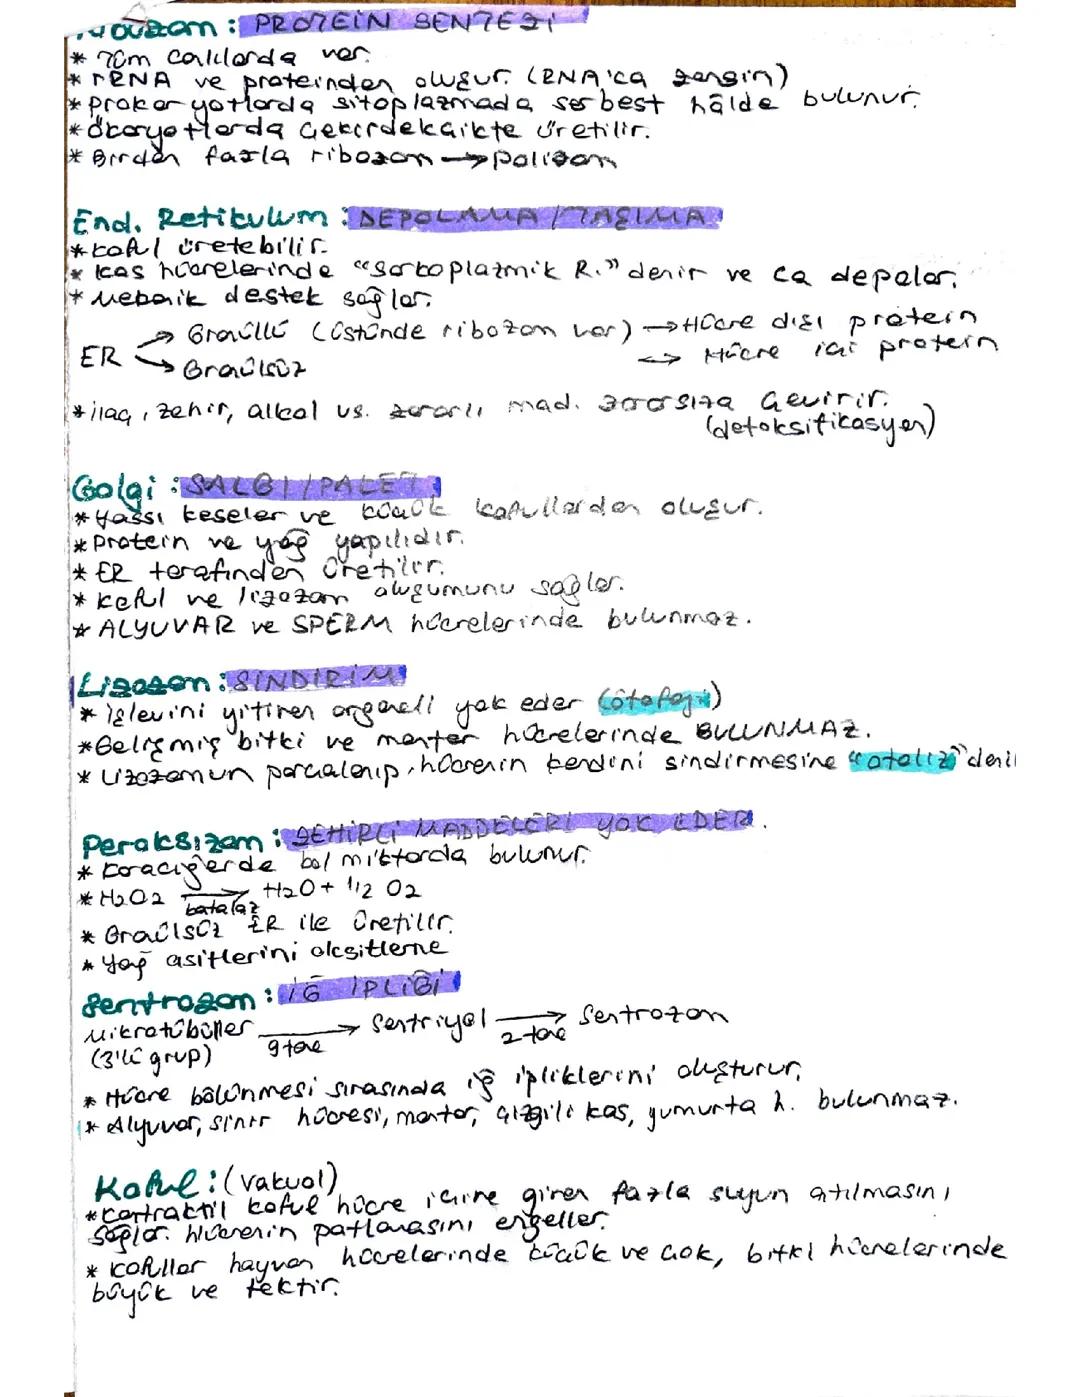 Ribozom: PROTEİN SENTEZİ
* Tüm canlılarda var.
* rRNA ve proteinden oluşur. (RNA'ca zengin)
* Prokaryotlarda sitoplazmada serbest hâlde bulunur.
* Ökaryotlarda çekirdekçikte üretilir.
* Birden fazla ribozom → polizom
End. Retikulum: DEPOLAMA / TAŞIMA
* Koful üretebilir.
* Kas hücrelerinde "Sarkoplazmik R." denir ve Ca depolar.
* Mekanik destek sağlar.
ER → Granüllü (üstünde ribozom var) → Hücre dışı protein
→ Hücre içi protein
→ Granülsüz
* ilaç, zehir, alkol vs. zararlı mad. zararsıza çevirir.
(detoksifikasyon)
Golgi: SALGI / PAKET
* Yassı keseler ve küçük kofullardan oluşur.
* Protein ve yağ yapılıdır.
* ER tarafından üretilir.
* Koful ve lizozom oluşumunu sağlar.
* ALYUVAR ve SPERM hücrelerinde bulunmaz.
Lizozom: SİNDİRİM
* işlevini yitiren organeli yok eder (otofaji)
* Gelişmiş bitki ve mantar hücrelerinde BULUNMAZ.
* Lizozomun parçalanıp, hücrenin kendini sindirmesine "otoliz" denir
Peroksizom: ZEHİRLİ MADDELERİ YOK EDER.
* Karaciğerde bol miktarda bulunur.
* H2O2 → H2O + 1/2 O2
katalaz
* Granülsüz ER ile üretilir.
* Yağ asitlerini oksitleme
Sentrozom: İĞ İPLİĞİ
Mikrotübüller → Sentriyol → Sentrozom
(3'lü grup) 9 tane 2 tane
* Hücre bölünmesi sırasında iğ ipliklerini oluşturur.
* Alyuvar, sinir hücresi, mantar, çizgili kas, yumurta h. bulunmaz.
Koful: (vakuol)
* Kontraktil koful hücre içine giren fazla suyun atılmasını
sağlar. hücrenin patlamasını engeller.
* Kofullar hayvan hücrelerinde küçük ve çok, bitki hücrelerinde
büyük ve tektir.